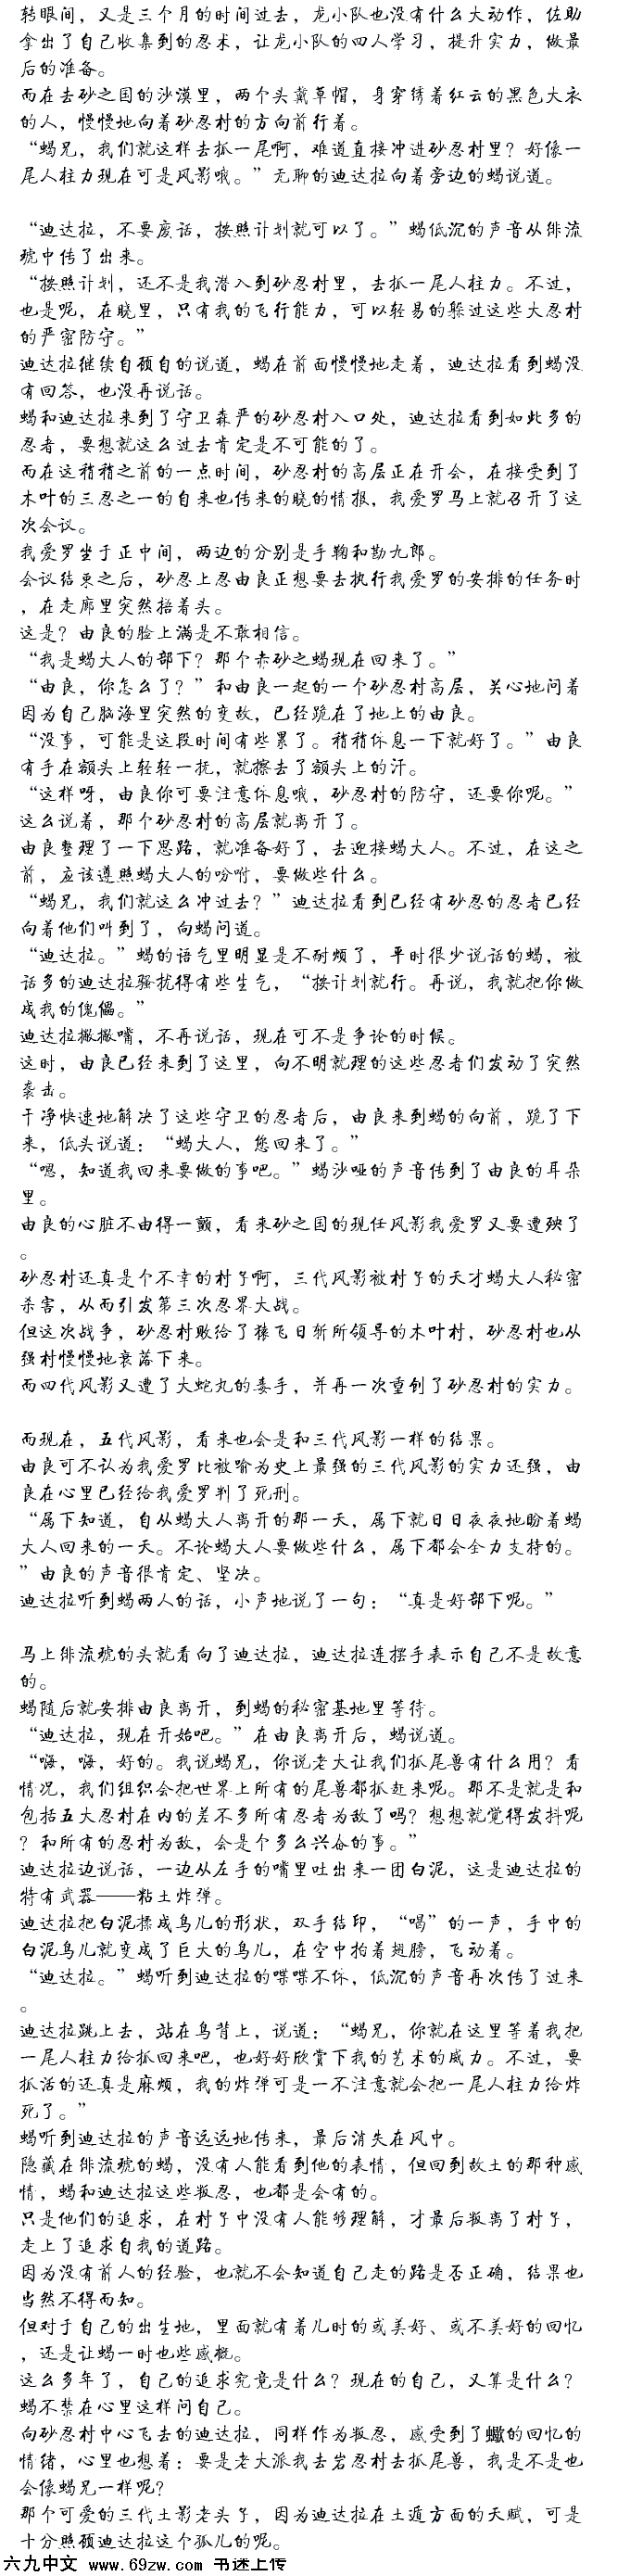 转眼间，又是三个月的时间过去，龙小队也没有什么大动作，佐助
拿出了自己收集到的忍术，让龙小队的四人学习，提升实力，做最
后的准备。
而在去砂之国的沙漠里，两个头戴草帽，身穿绣着红云的黑色大衣
的人，慢慢地向着砂忍村的方向前行着。
“蝎兄，我们就这样去抓一尾啊，难道直接冲进砂忍村里？好像一
尾人柱力现在可是风影哦。”无聊的迪达拉向着旁边的蝎说道。
“迪达拉，不要废话，按照计划就可以了。”蝎低沉的声音从绯流
琥中传了出来。
“按照计划，还不是我潜入到砂忍村里，去抓一尾人柱力。不过，
也是呢，在晓里，只有我的飞行能力，可以轻易的躲过这些大忍村
的严密防守。”
迪达拉继续自顾自的说道，蝎在前面慢慢地走着，迪达拉看到蝎没
有回答，也没再说话。
蝎和迪达拉来到了守卫森严的砂忍村入口处，迪达拉看到如此多的
忍者，要想就这么过去肯定是不可能的了。
而在这稍稍之前的一点时间，砂忍村的高层正在开会，在接受到了
木叶的三忍之一的自来也传来的晓的情报，我爱罗马上就召开了这
次会议。
我爱罗坐于正中间，两边的分别是手鞠和勘九郎。
会议结束之后，砂忍上忍由良正想要去执行我爱罗的安排的任务时
，在走廊里突然捂着头。
这是？由良的脸上满是不敢相信。
“我是蝎大人的部下？那个赤砂之蝎现在回来了。”
“由良，你怎么了？”和由良一起的一个砂忍村高层，关心地问着
因为自己脑海里突然的变故，已经跪在了地上的由良。
“没事，可能是这段时间有些累了。稍稍休息一下就好了。”由良
有手在额头上轻轻一抚，就擦去了额头上的汗。
“这样呀，由良你可要注意休息哦，砂忍村的防守，还要你呢。”
这么说着，那个砂忍村的高层就离开了。
由良整理了一下思路，就准备好了，去迎接蝎大人。不过，在这之
前，应该遵照蝎大人的吩咐，要做些什么。
“蝎兄，我们就这么冲过去？”迪达拉看到已经有砂忍的忍者已经
向着他们叫到了，向蝎问道。
“迪达拉。”蝎的语气里明显是不耐烦了，平时很少说话的蝎，被
话多的迪达拉骚扰得有些生气，“按计划就行。再说，我就把你做
成我的傀儡。”
迪达拉撇撇嘴，不再说话，现在可不是争论的时候。
这时，由良已经来到了这里，向不明就理的这些忍者们发动了突然
袭击。
干净快速地解决了这些守卫的忍者后，由良来到蝎的向前，跪了下
来，低头说道：“蝎大人，您回来了。”
“嗯，知道我回来要做的事吧。”蝎沙哑的声音传到了由良的耳朵
里。
由良的心脏不由得一颤，看来砂之国的现任风影我爱罗又要遭殃了
。
砂忍村还真是个不幸的村子啊，三代风影被村子的天才蝎大人秘密
杀害，从而引发第三次忍界大战。
但这次战争，砂忍村败给了猿飞日斩所领导的木叶村，砂忍村也从
强村慢慢地衰落下来。
而四代风影又遭了大蛇丸的毒手，并再一次重创了砂忍村的实力。
而现在，五代风影，看来也会是和三代风影一样的结果。
由良可不认为我爱罗比被喻为史上最强的三代风影的实力还强，由
良在心里已经给我爱罗判了死刑。
“属下知道，自从蝎大人离开的那一天，属下就日日夜夜地盼着蝎
大人回来的一天。不论蝎大人要做些什么，属下都会全力支持的。
”由良的声音很肯定、坚决。
迪达拉听到蝎两人的话，小声地说了一句：“真是好部下呢。”
马上绯流琥的头就看向了迪达拉，迪达拉连摆手表示自己不是故意
的。
蝎随后就安排由良离开，到蝎的秘密基地里等待。
“迪达拉，现在开始吧。”在由良离开后，蝎说道。
“嗨，嗨，好的。我说蝎兄，你说老大让我们抓尾兽有什么用？看
情况，我们组织会把世界上所有的尾兽都抓起来呢。那不是就是和
包括五大忍村在内的差不多所有忍者为敌了吗？想想就觉得发抖呢
？和所有的忍村为敌，会是个多么兴奋的事。”
迪达拉边说话，一边从左手的嘴里吐出来一团白泥，这是迪达拉的
特有武器——粘土炸弹。
迪达拉把白泥揉成鸟儿的形状，双手结印，“喝”的一声，手中的
白泥鸟儿就变成了巨大的鸟儿，在空中拍着翅膀，飞动着。
“迪达拉。”蝎听到迪达拉的喋喋不休，低沉的声音再次传了过来
。
迪达拉跳上去，站在鸟背上，说道：“蝎兄，你就在这里等着我把
一尾人柱力给抓回来吧，也好好欣赏下我的艺术的威力。不过，要
抓活的还真是麻烦，我的炸弹可是一不注意就会把一尾人柱力给炸
死了。”
蝎听到迪达拉的声音远远地传来，最后消失在风中。
隐藏在绯流琥的蝎，没有人能看到他的表情，但回到故土的那种感
情，蝎和迪达拉这些叛忍，也都是会有的。
只是他们的追求，在村子中没有人能够理解，才最后叛离了村子，
走上了追求自我的道路。
因为没有前人的经验，也就不会知道自己走的路是否正确，结果也
当然不得而知。
但对于自己的出生地，里面就有着儿时的或美好、或不美好的回忆
，还是让蝎一时也些感概。
这么多年了，自己的追求究竟是什么？现在的自己，又算是什么？
蝎不禁在心里这样问自己。
向砂忍村中心飞去的迪达拉，同样作为叛忍，感受到了蠍的回忆的
情绪，心里也想着：要是老大派我去岩忍村去抓尾兽，我是不是也
会像蝎兄一样呢？
那个可爱的三代土影老头子，因为迪达拉在土遁方面的天赋，可是
十分照顾迪达拉这个孤儿的呢。
六九中文 www.69zw.com 书迷上传